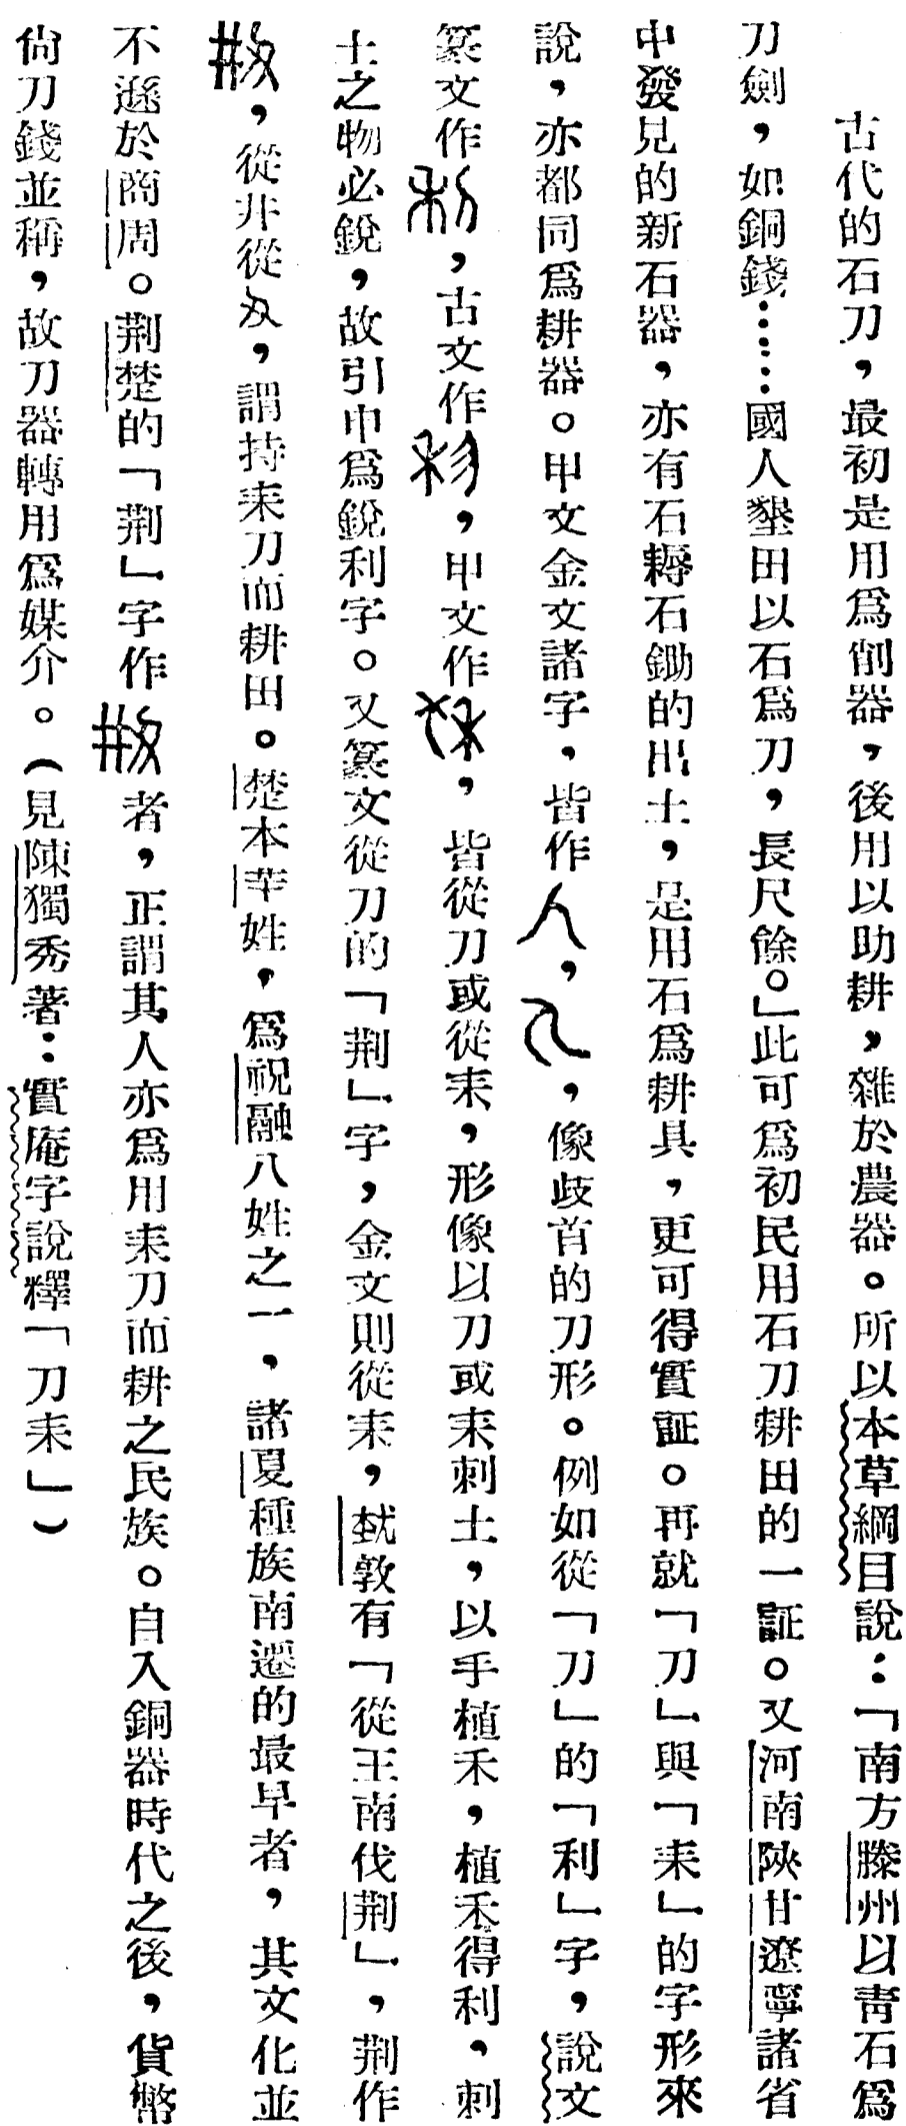 古代的石刀，最初是用爲削器，後用以助耕，雜於農器。所以本草綱目說：「南方滕州以青石爲
刀劍，如銅錢……國人墾田以石爲刀，長尺餘。」此可爲初民用石刀耕田的一証。又河南陝甘遼寧諸省
中發見的新石器，亦有石耨石鋤的出土，是用石爲耕具，更可得實証。再就「刀」與「耒」的字形來
說，亦都同爲耕器。甲文金文諸字，皆作，，像歧首的刀形。例如從「刀」的「利」字，說文
篆文作，古文作，甲文作，皆從刀或從耒，形像以刀或耒刺土，以手植禾，植禾得利，刺
土之物必銳，故引申爲銳利字。又篆文從刀的「荆」字，金文則從耒，敦有「從王南伐荆」，荆作
，從井從，謂持耒刀而耕田。楚本芈姓，爲祝融八姓之一，諸夏種族南遷的最早者，其文化並
不遜於商周。荆楚的「荆」字作者，正謂其人亦爲用耒刀而耕之民族。自入銅器時代之後，貨幣
尙刀錢並稱，故刀器轉用爲媒介。（見陳獨秀著：實庵字說釋「刀耒」）